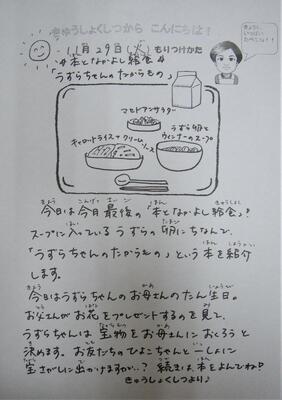 きゅうしょくしつから こんにちは！
11月29日(火) もりつけかた
本となかよし給食
「うずらちゃんのたからもの」
マセドアンサラダ
キャロットライス＋クリームソース
うずら卵と
ウィンナーのスープ
今日は今月最後の「本となかよし給食」！
スープに入っているうずらの卵にちなんで、
「うずらちゃんのたからもの」という本を紹介
します。
今日はうずらちゃんのお母さんのたん生日。
お父さんがお花をプレゼントするのを見て、
うずらちゃんは宝物をお母さんにおくろうと
決めます。お友だちのひよこちゃんと一しょに
宝さがしに出かけますが…？続きは、本をよんでね♡
きゅうしょくしつより♪